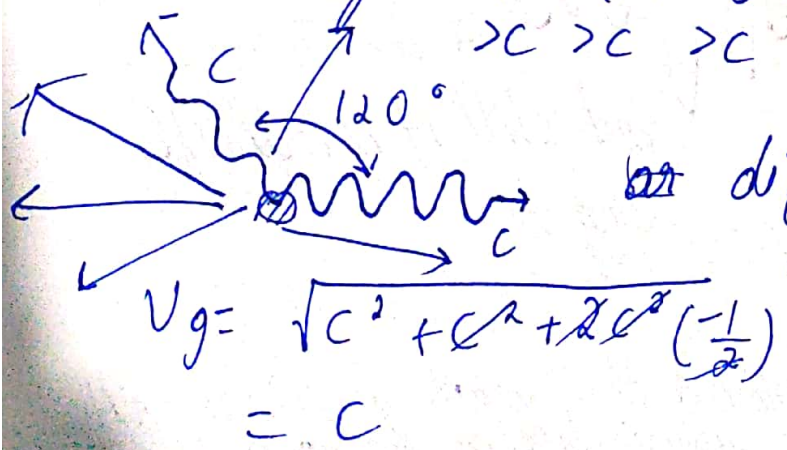 >c >c >c
C
120°
di
C
Vg= √c² + c² + 2c² (-1/2)
= C